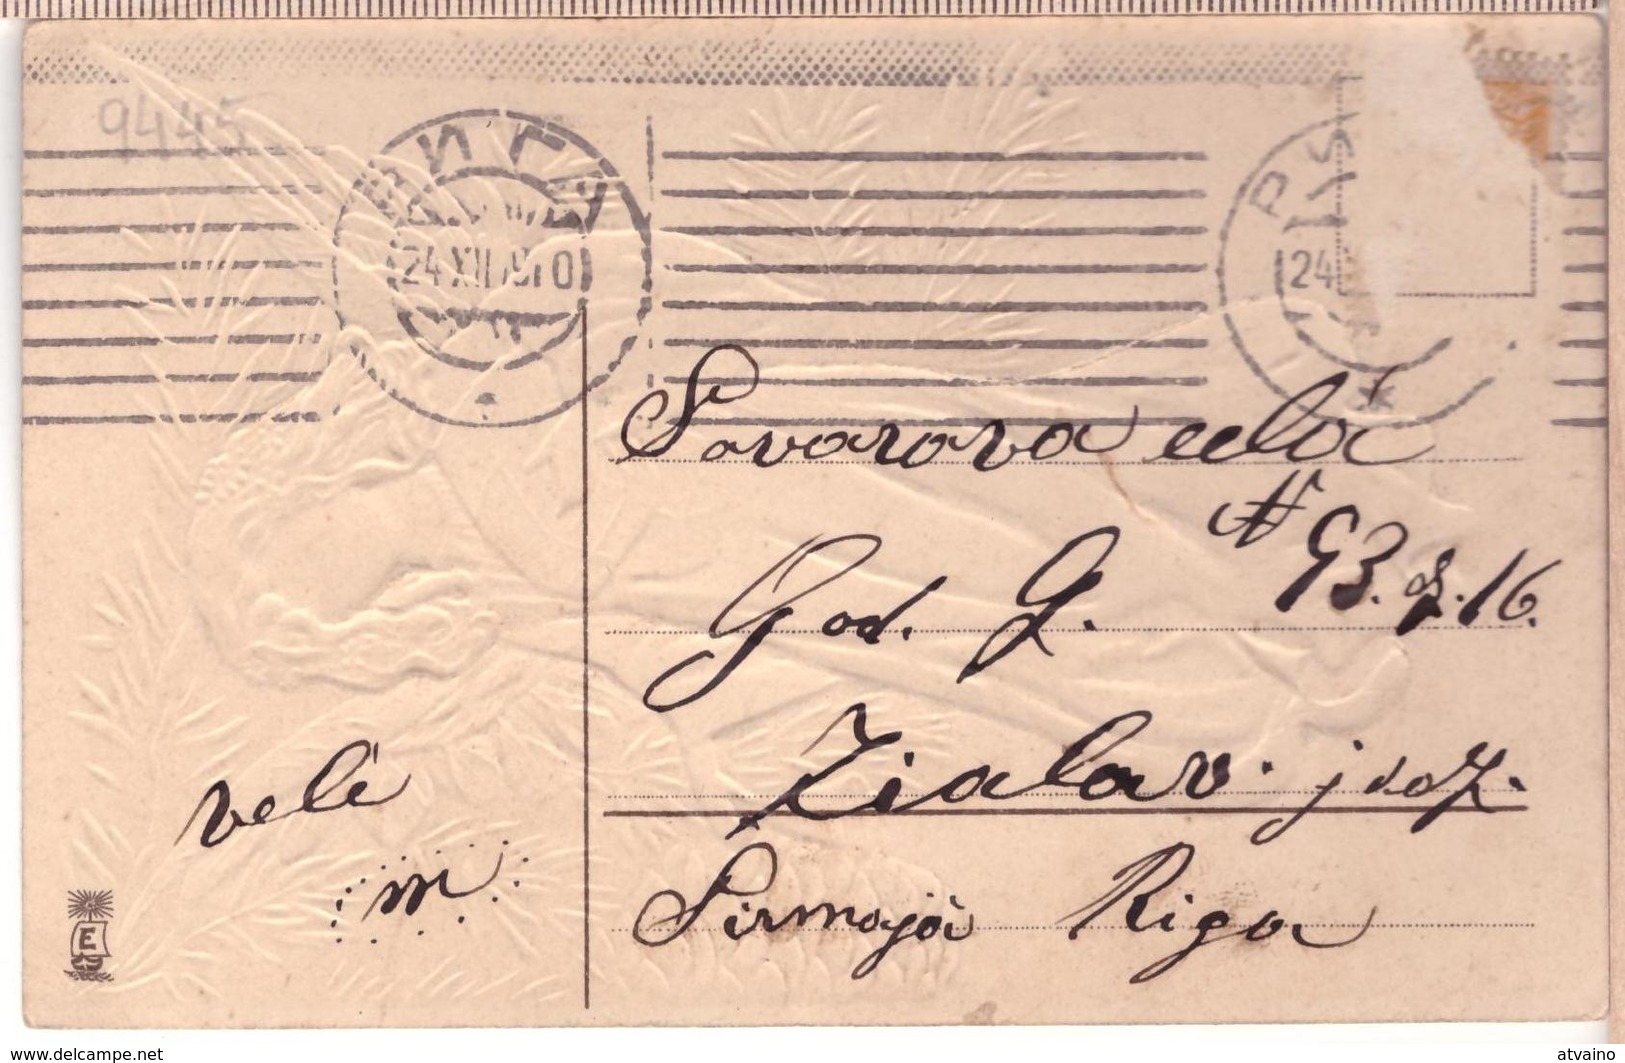 9445
РИГА
24 XII 1910
24
Suvarova eelā
№ 93. dz. 16.
God. G.
Zialav. jdoz.
Pirmajā Riga
velē
m
E
www.delcampe.net
atvaino